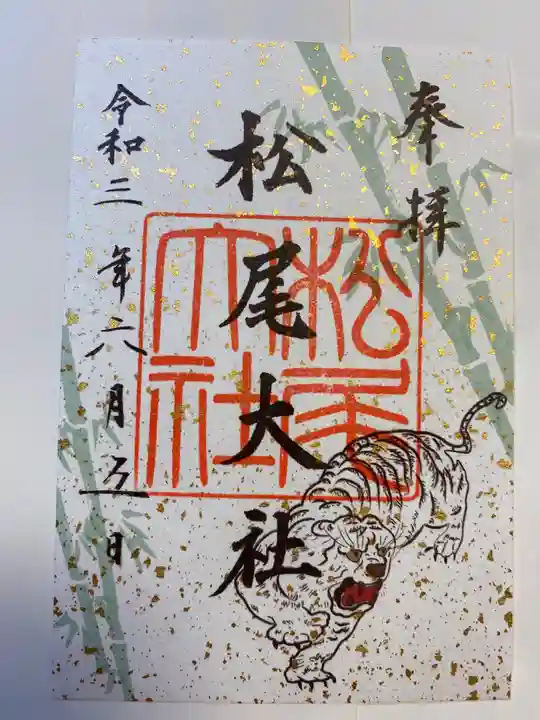 奉拝
松尾大社
松尾大社
令和三年六月五日